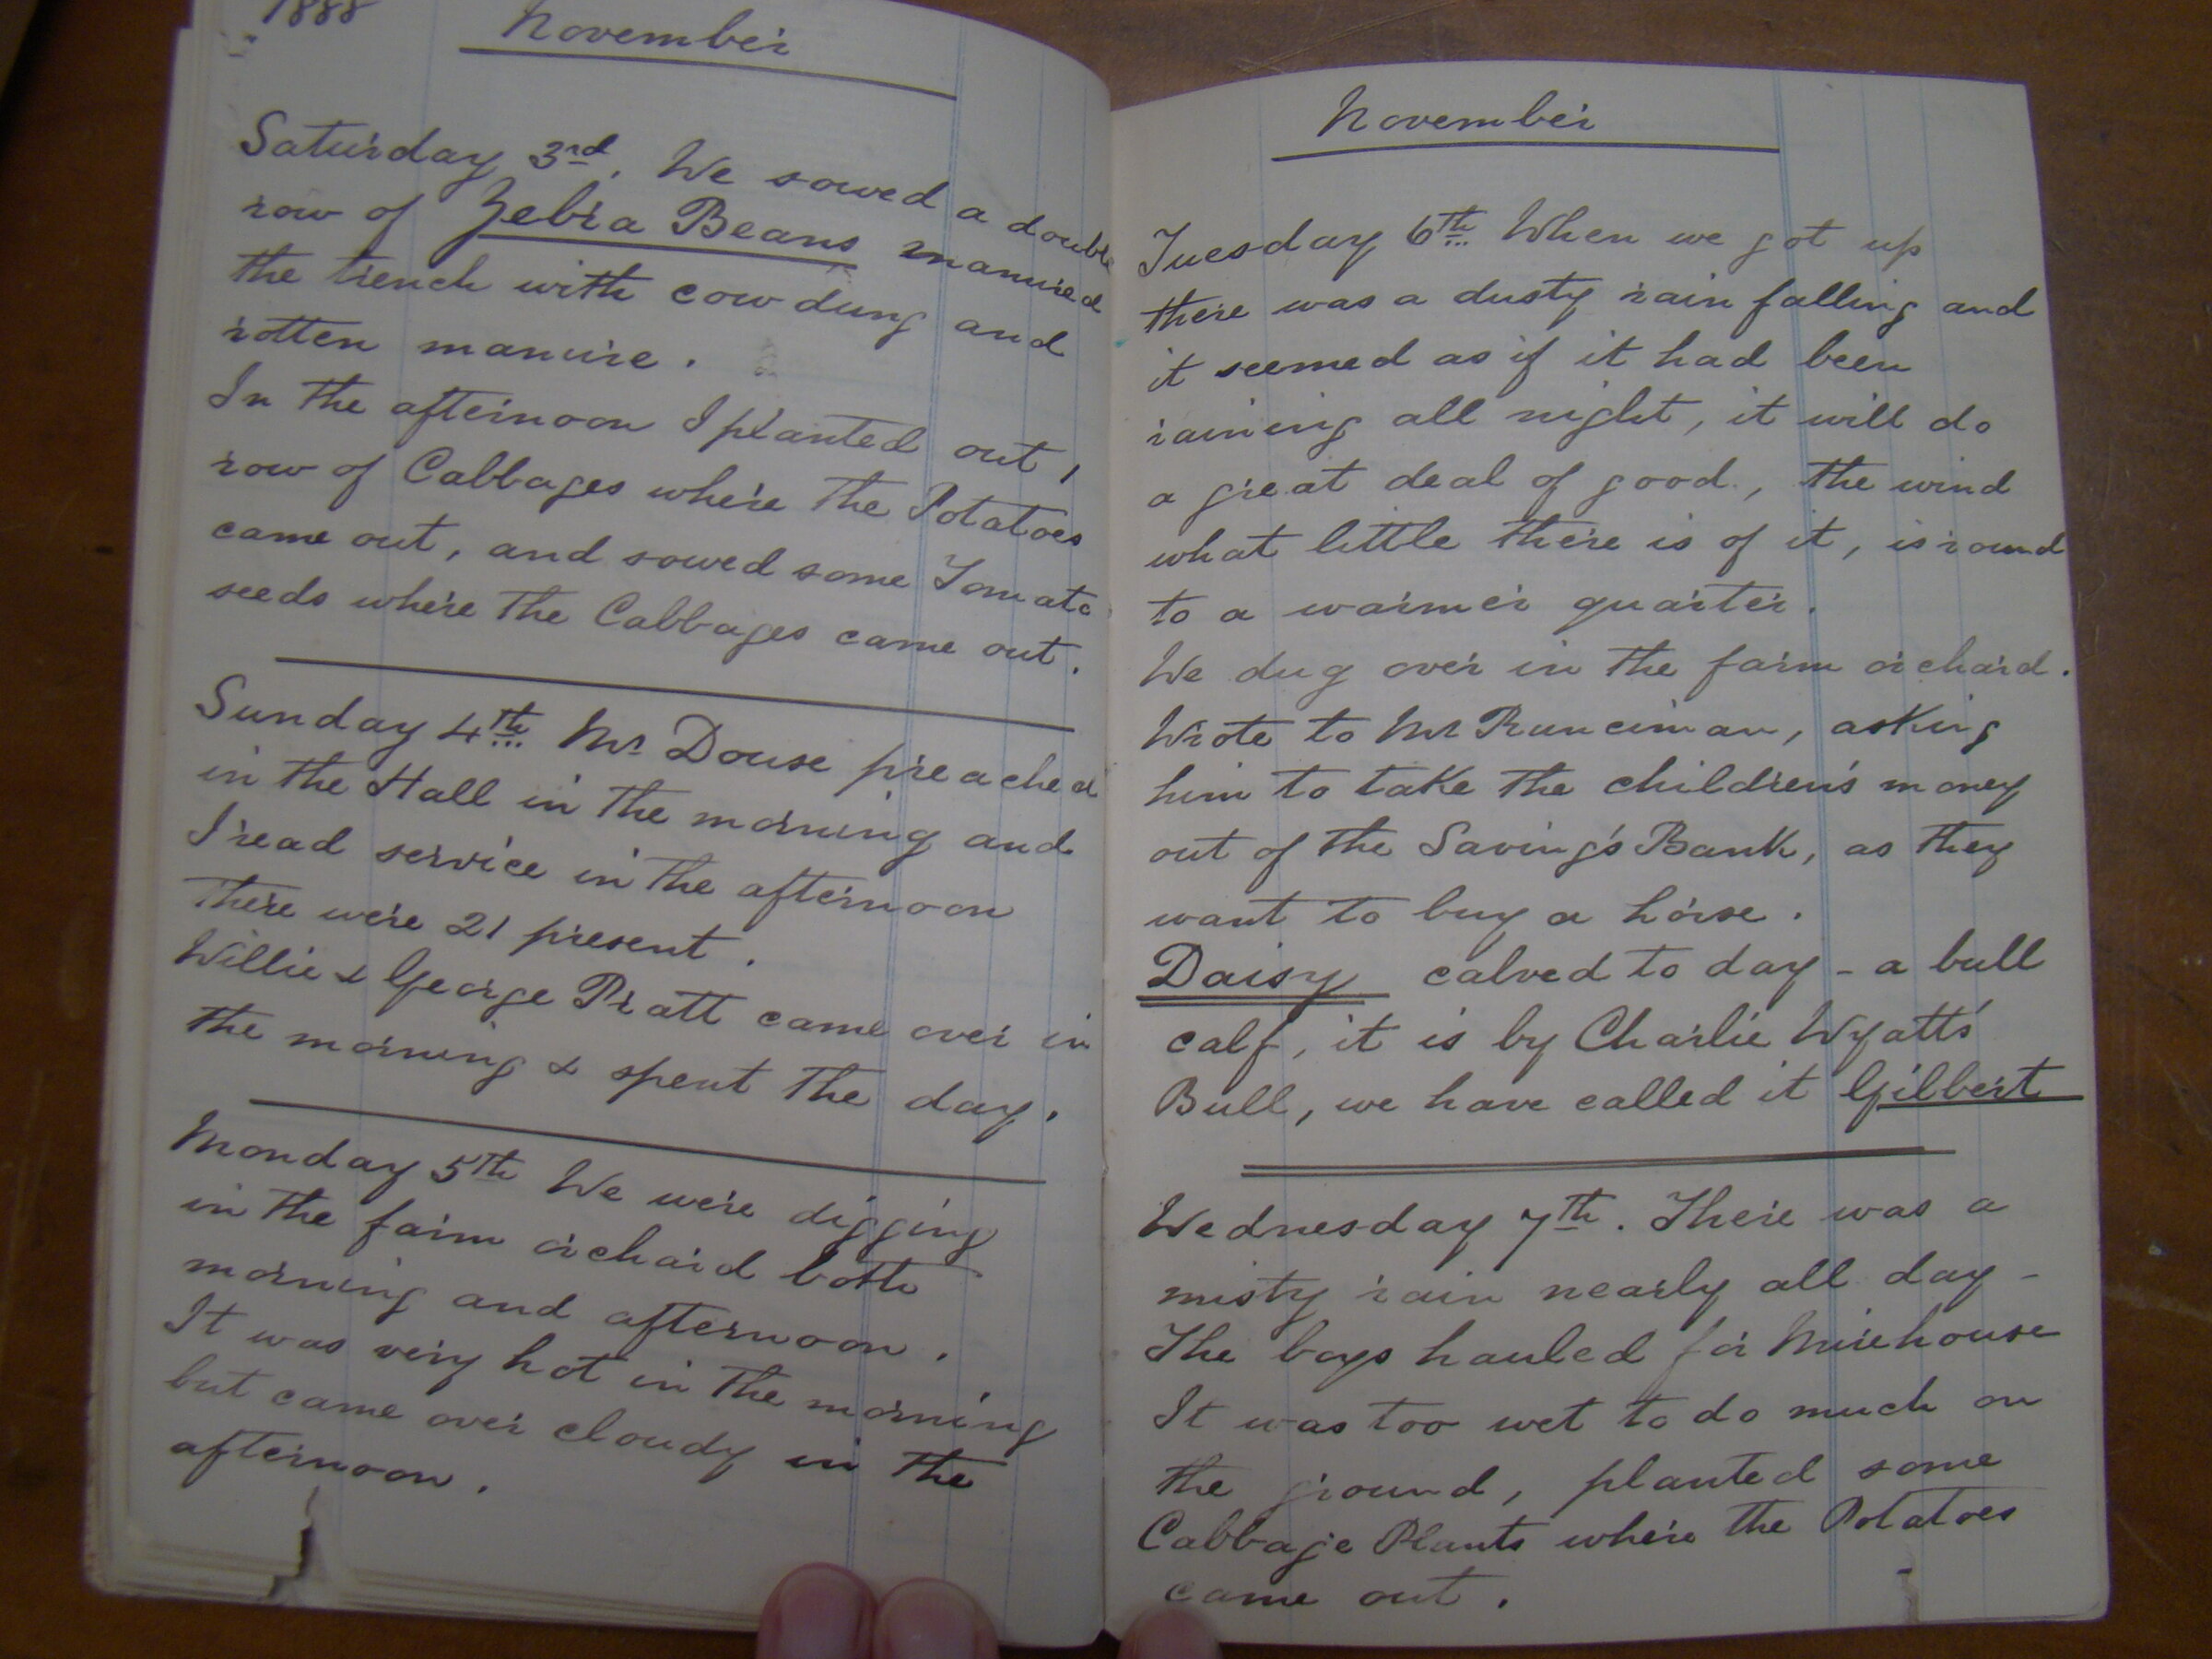 1888 November
Saturday 3rd. We sowed a double
row of Zebra Beans manured
the trench with cow dung and
rotten manure.
In the afternoon I planted out 1
row of Cabbages where the Potatoes
came out, and sowed some Tomato
seeds where the Cabbages came out.
Sunday 4th Mr Douse preached
in the Hall in the morning and
I read service in the afternoon
There were 21 present.
Willie & George Pratt came over in
the morning & spent the day.
Monday 5th We were digging
in the farm orchard both
morning and afternoon.
It was very hot in the morning
but came over cloudy in the
afternoon.
November
Tuesday 6th When we got up
there was a dusty rain falling and
it seemed as if it had been
raining all night, it will do
a great deal of good, the wind
what little there is of it, is round
to a warmer quarter.
We dug over in the farm orchard.
Wrote to Mr Runciman, asking
him to take the children's money
out of the Saving's Bank, as they
want to buy a horse.
Daisy calved to day - a bull
calf, it is by Charlie Wyatt's
Bull, we have called it Gilbert
Wednesday 7th. There was a
misty rain nearly all day -
The boys hauled for Mirehouse
It was too wet to do much on
the ground, planted some
Cabbage Plants where the Potatoes
came out.